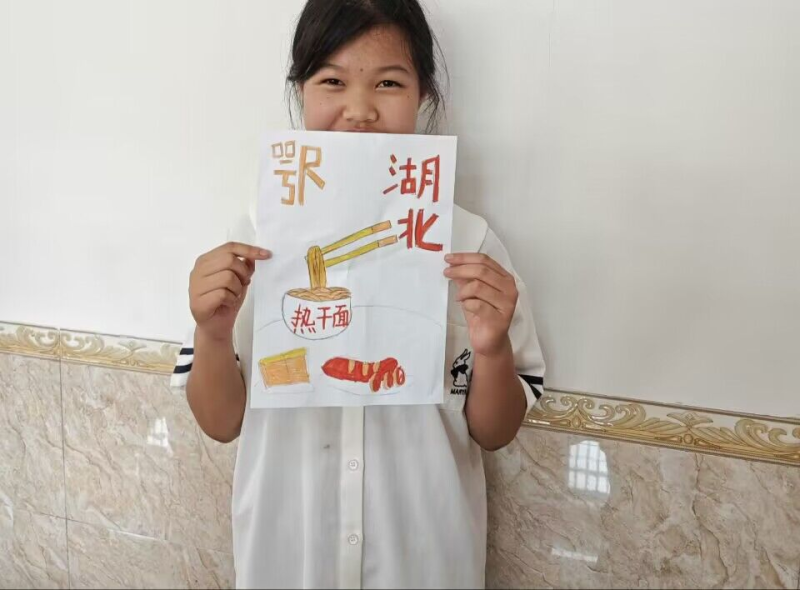 鄂
湖
北
热干面